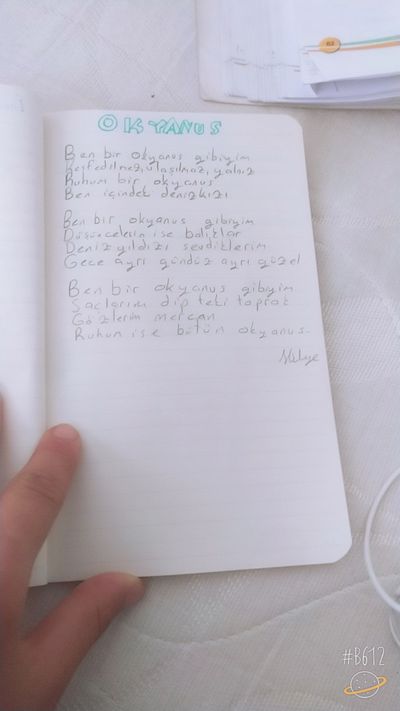 OKYANUS
Ben bir okyanus gibiyim
Keşfedilmez, ulaşılmaz, yalnız
Ruhum bir okyanus
Ben içindek denizkızı
Ben bir okyanus gibiyim
Düşüncelerim ise balıklar
Deniz yıldızı sevdiklerim
Gece ayrı gündüz ayrı güzel
Ben bir okyanus gibiyim
Saçlarım dipteki toprak
Gözlerim mercan
Ruhum ise bütün okyanus.
62
#B612